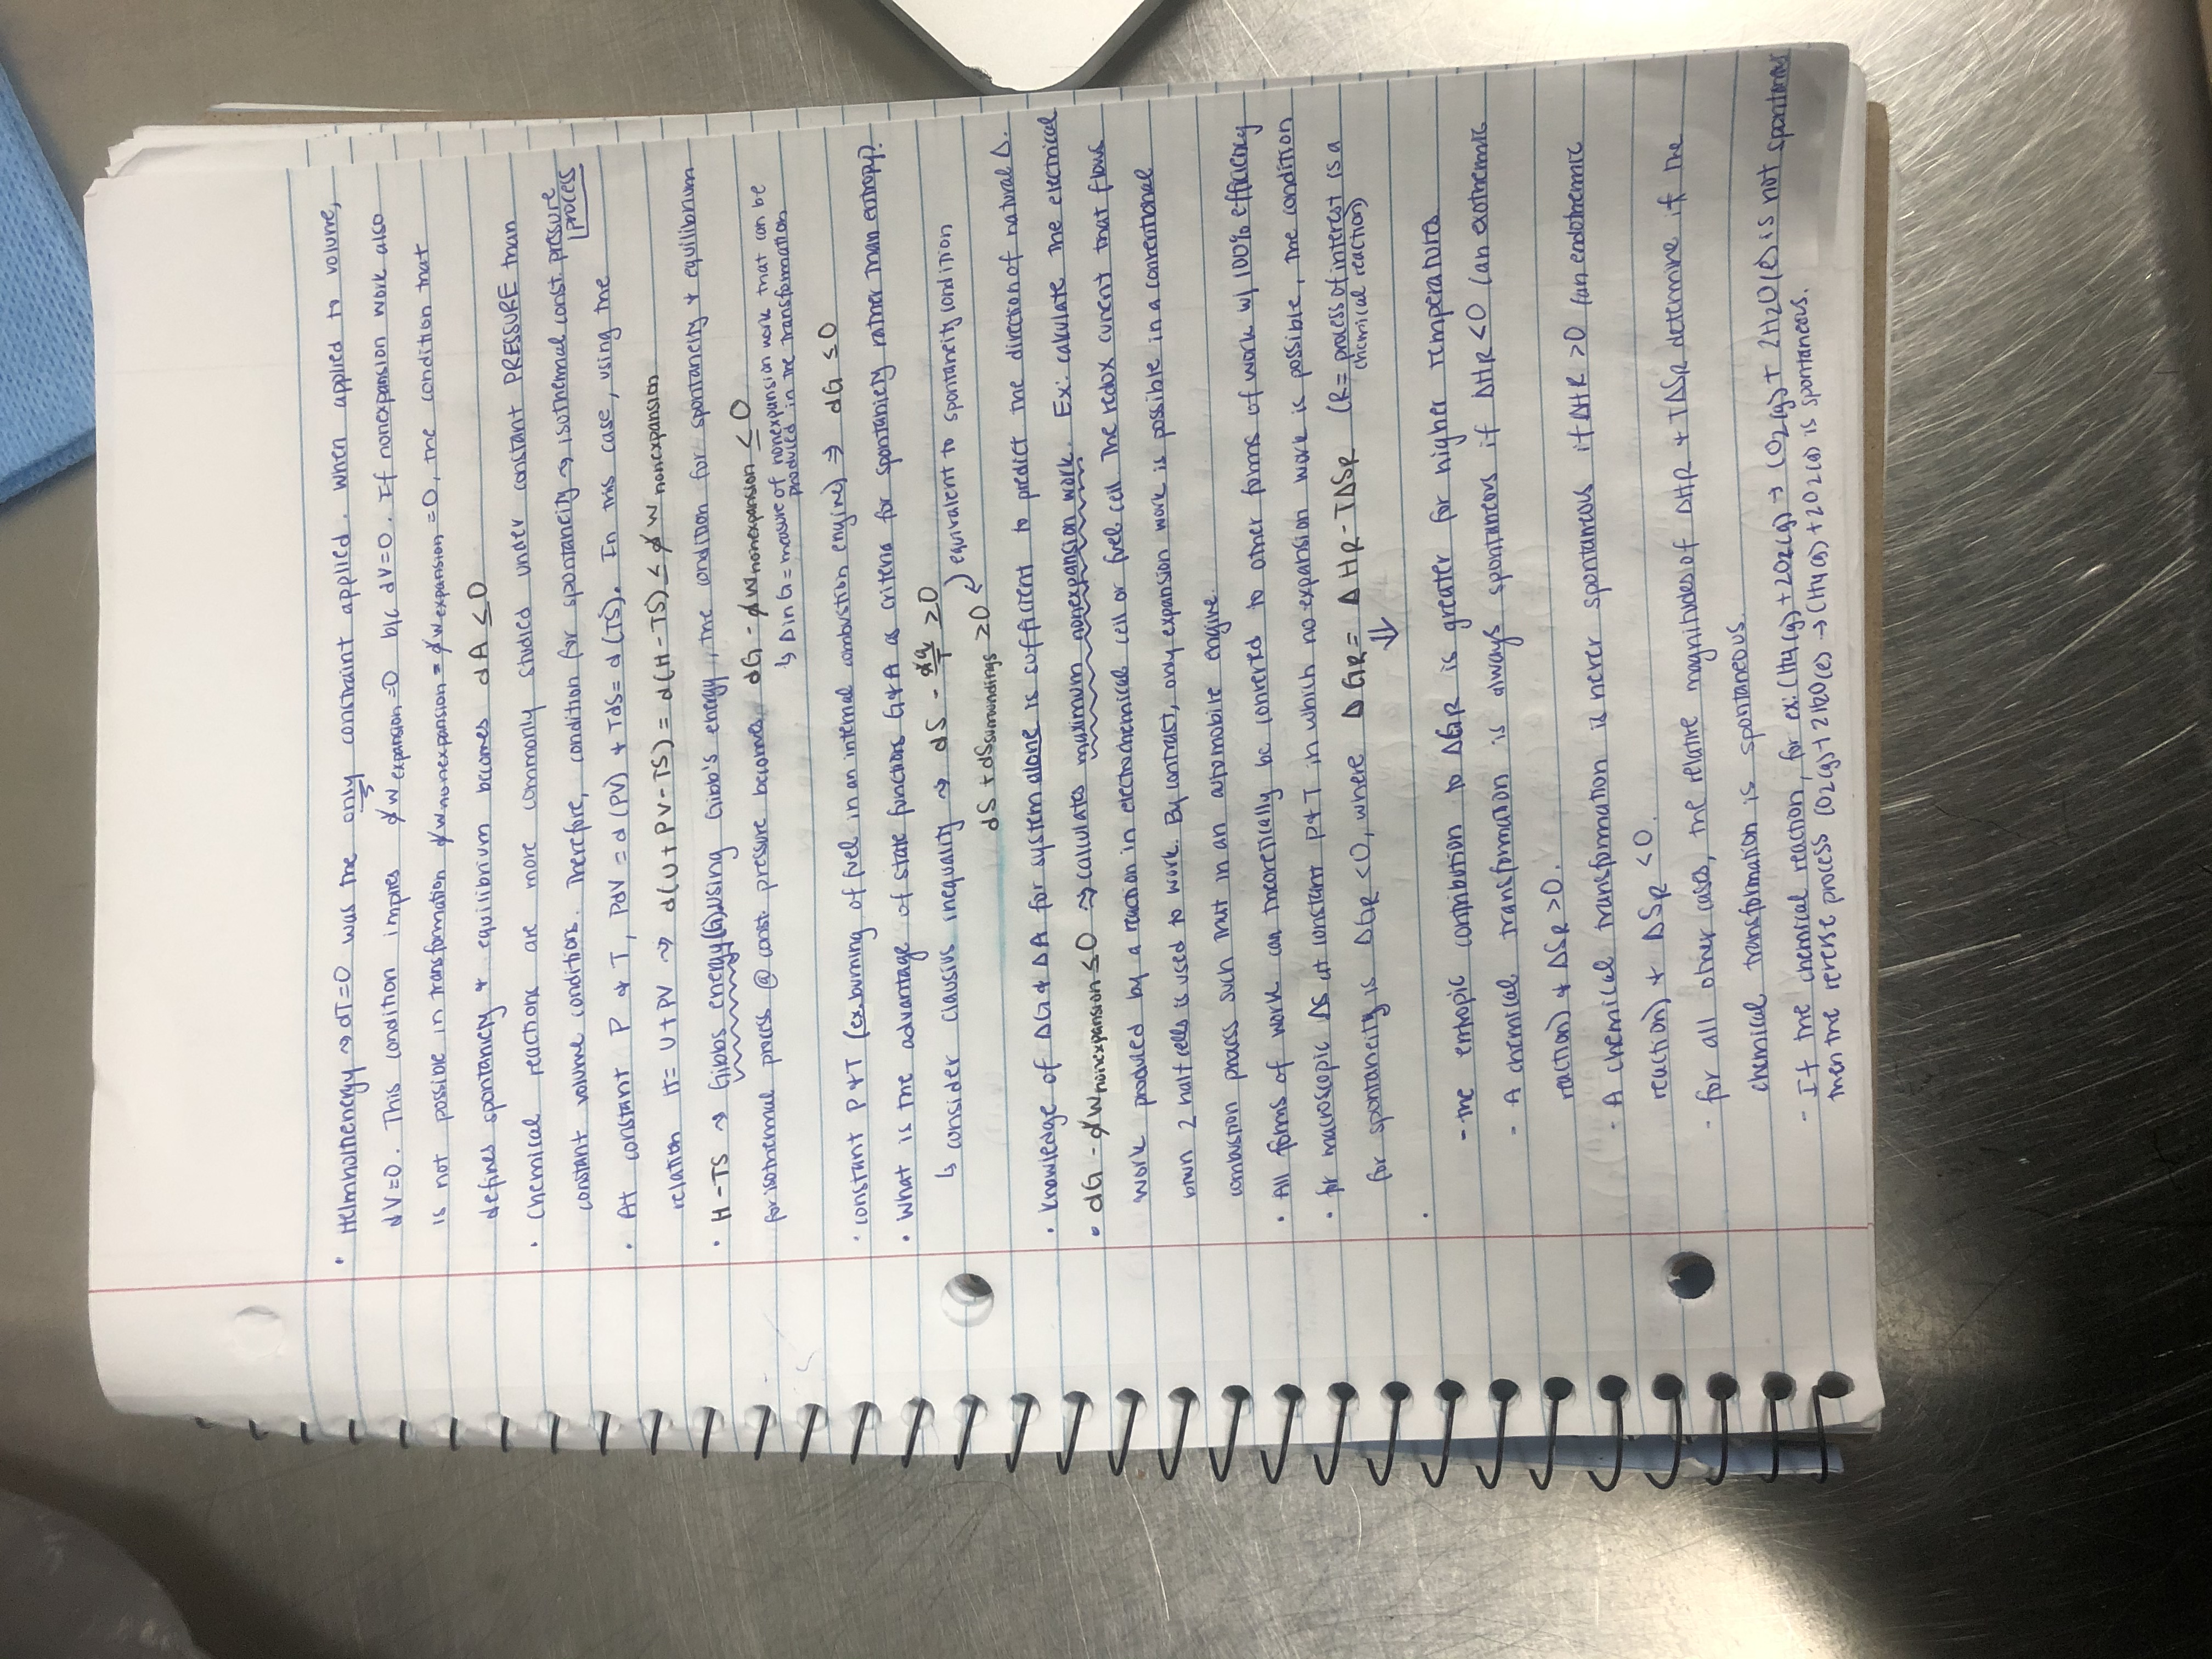 · Helmholtnenergy ⇝ dT=0 was the only constraint applied. When applied to volume,
dV=0. This condition implies đw expansion =0 b/c dV=0. If nonexpansion work also
is not possible in transformation đw nonexpansion = đw expansion =0, the condition that
defines spontaniety & equilibrium becomes dA ≤ 0
· Chemical reactions are more commonly studied under constant PRESSURE than
constant volume conditions. Therefore, condition for spontaneity ⇝ isothermal const. pressure
process
· At constant P & T, PdV = d(PV) & TdS = d(TS). In this case, using the
relation H= U + PV ⇝ d(U + PV - TS) = d(H - TS) ≤ đw nonexpansion
· H-TS ⇝ Gibbs energy(G). Using Gibb's energy, the condition for spontaneity & equilibrium
for isothermal process @ const. pressure becomes dG - đw nonexpansion ≤ 0
↳ Δ in G = measure of nonexpansion work that can be
produced in the transformation
· constant P & T (ex. burning of fuel in an internal combustion engine) ⇒ dG ≤ 0
· What is the advantage of state functions G & A as criteria for spontaniety rather than entropy?
↳ consider Clausius inequality ⇝ dS - đq/T ≥ 0
equivalent to spontaneity condition
dS + dSsurroundings ≥ 0
· Knowledge of ΔG & ΔA for system alone is sufficient to predict the direction of natural Δ.
· dG - đw nonexpansion ≤ 0 ⇝ calculates maximum nonexpansion work. Ex: calculate the electrical
work produced by a reaction in electrochemical cell or fuel cell. The redox current that flows
btwn 2 half cells is used to work. By contrast, only expansion work is possible in a conventional
combustion process such that in an automobile engine.
· All forms of work can theoretically be converted to other forms of work w/ 100% efficiency
· for macroscopic Δs at constant P & T in which no expansion work is possible, the condition
for spontaneity is ΔGR < 0, where ΔGR = ΔHR - TΔSR (R = process of interest is a
chemical reaction)
⇓
·
- the entropic contribution to ΔGR is greater for higher temperatures
- A chemical transformation is always spontaneous if ΔHR < 0 (an exothermic
reaction) & ΔSR > 0.
- A chemical transformation is never spontaneous if ΔHR > 0 (an endothermic
reaction) & ΔSR < 0.
- for all other cases, the relative magnitudes of ΔHR & TΔSR determine if the
chemical transformation is spontaneous.
- If the chemical reaction, for ex: CH4(g) + 2O2(g) → CO2(g) + 2H2O(ℓ) is not spontaneous
then the reverse process CO2(g) + 2H2O(ℓ) → CH4(g) + 2O2(g) is spontaneous.